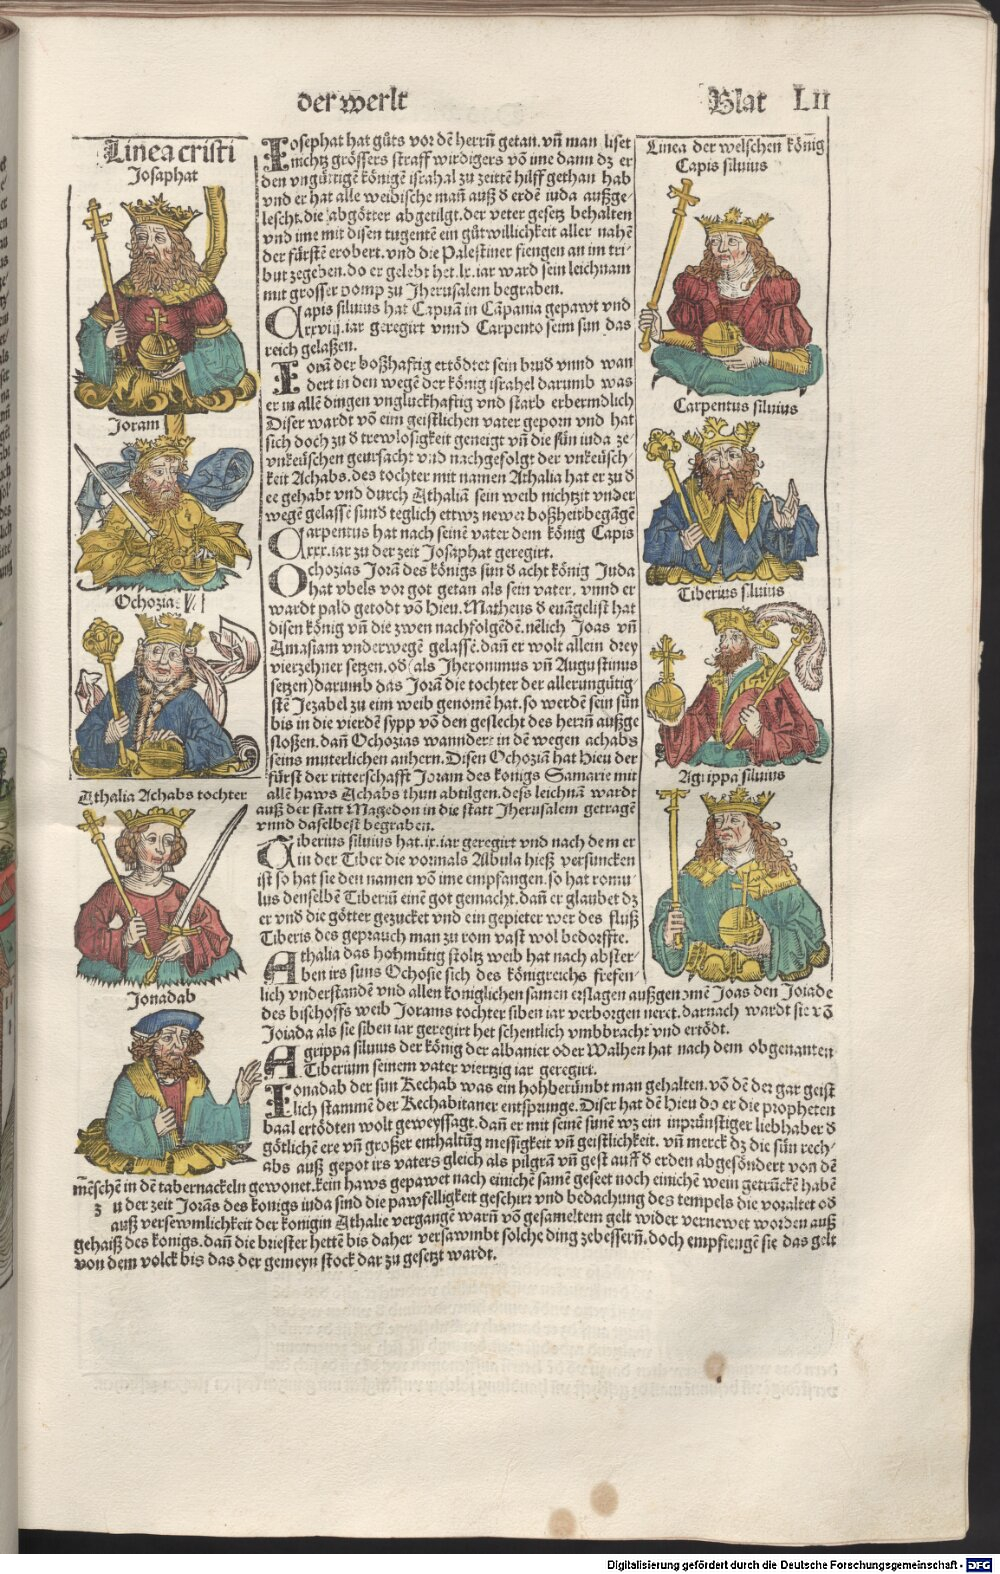 der werlt
Blat LII
Linea cristi
Josaphat
Joram
Ochozias
Athalia Achabs tochter
Jonadab
Josephat hat gůts vor dē herrn getan. vn̄ man liset
nichtz grössers straff wirdigers vō ime dann dz er
den vngüttigē königē israhal zu zeittē hilff gethan hab
vnd er hat alle weibische man̄ auß d erdē iuda außge-
lescht. die abgötter abgetilgt. der veter gesetz behalten
vnd ime mit disen tugentē ein gůtwillichkeit aller nahē
der fürstē erobert. vnd die Palestiner fiengen an im tri-
but zegeben. do er gelebt het. lx. iar ward sein leichnam
mit grosser pomp zu Jherusalem begraben.
Capis siluius hat Capuā in Cāpania gepawt vnd
xxviij. iar geregirt vnnd Carpento seim sun das
reich gelaßen.
Jorā der boßhaftig ertödtet sein brud vnnd wan
dert in den wegē der könig israhel darumb was
er in allē dingen vngluckhaftig vnd starb erbermdlich
Diser wardt vō eim geistlichen vater geporn vnd hat
sich doch zu d trewlosigkeit geneigt vn̄ die sün iuda ze-
vnkeüschen geursacht vnd nachgefolgt der vnkeüsch-
keit Achabs. des tochter mit namen Athalia hat er zu d
ee gehabt vnd durch Athaliā sein weib nichtzit vnder
wegē gelassē sund teglich ettwz newer boßheit begāgē
Carpentus hat nach seinē vater dem könig Capis
xxx. iar zu der zeit Josaphat geregirt.
Ochozias Jorā des königs sun d acht könig Juda
hat vbels vor got getan als sein vater. vnnd er
wardt pald getodt vō Hieu. Matheus d euāgelist hat
disen könig vn̄ die zwen nachfolgēdē. nēlich Joas vn̄
Amasiam vnderwegē gelassē. dan̄ er wolt allein drey
vierzehner setzen. od (als Jheronimus vn̄ Augustinus
setzen) darumb das Jorā die tochter der allerungütig-
stē Jezabel zu eim weib genomē hat. so werdē sein sün
bis in die vierdē sypp vō den geslecht des herrn̄ außge
sloßen. dan̄ Ochozias wandert in dē wegen achabs
seins muterlichen anhern. Disen Ochoziā hat Hieu der
fürst der ritterschafft Joram des konigs Samarie mit
allē haws Achabs thun abtilgen. des leichnā wardt
auß der statt Magedon in die statt Jherusalem getragē
vnnd daselbest begraben.
Tiberius siluius hat. ix. iar geregirt vnd nach dem er
in der Tiber die vormals Albula hieß versuncken
ist so hat sie den namen vō ime empfangen. so hat romu-
lus denselbē Tiberiū einē got gemacht. dan̄ er glaubet dz
er vnd die götter gezucket vnd ein gepieter wer des fluß
Tiberis des geprauch man zu rom vast wol bedorffte.
Athalia das hohmütig stoltz weib hat nach abster-
ben irs suns Ochosie sich des königreichs frefen-
lich vnderstandē vnd allen koniglichen samen erslagen außgenomē Joas den Joiade
des bischoffs weib Jorams tochter siben iar verborgen neret. darnach wardt sie vō
Joiada als sie siben iar geregirt het schentlich vmbbracht vnd ertödt.
Agrippa siluius der könig der albanier oder Walhen hat nach dem obgenanten
Tiberium seinem vater viertzig iar geregirt.
Jonadab der sun Rechab was ein hohberümbt man gehalten. vō dē der gar geist
lich stammē der Rechabitaner entsprunge. Diser hat dē Hieu do er die propheten
baal ertödten wolt geweyssagt. dan̄ er mit seinē sünē wz ein inprünstiger liebhaber d
götlichē ere vn̄ großer enthaltūg messigkeit vn̄ geistlichkeit. vn̄ merck dz die sün rech-
abs auß gepot irs vaters gleich als pilgrā vn̄ gest auff d erden abgesöndert von dē
mēschē in dē tabernackeln gewonet. kein haws gepawet nach einichē samē geseet noch einichē wein getrūckē habē
Zu der zeit Jorās des konigs iuda sind die pawfelligkeit geschirr vnd bedachung des tempels die voraltet od
auß versewmlichkeit der konigin Athalie vergangē warn̄ vō gesameltem gelt wider vernewet worden auß
gehaiß des konigs. dan̄ die briester hettē bis daher versawmbt solche ding zebessern̄. doch empfiengē sie das gelt
von dem volck bis das der gemeyn stock dar zu gesetzt wardt.
Linea der welschen König
Capis siluius
Carpentus siluius
Tiberius siluius
Agrippa siluius
Digitalisierung gefördert durch die Deutsche Forschungsgemeinschaft - DFG